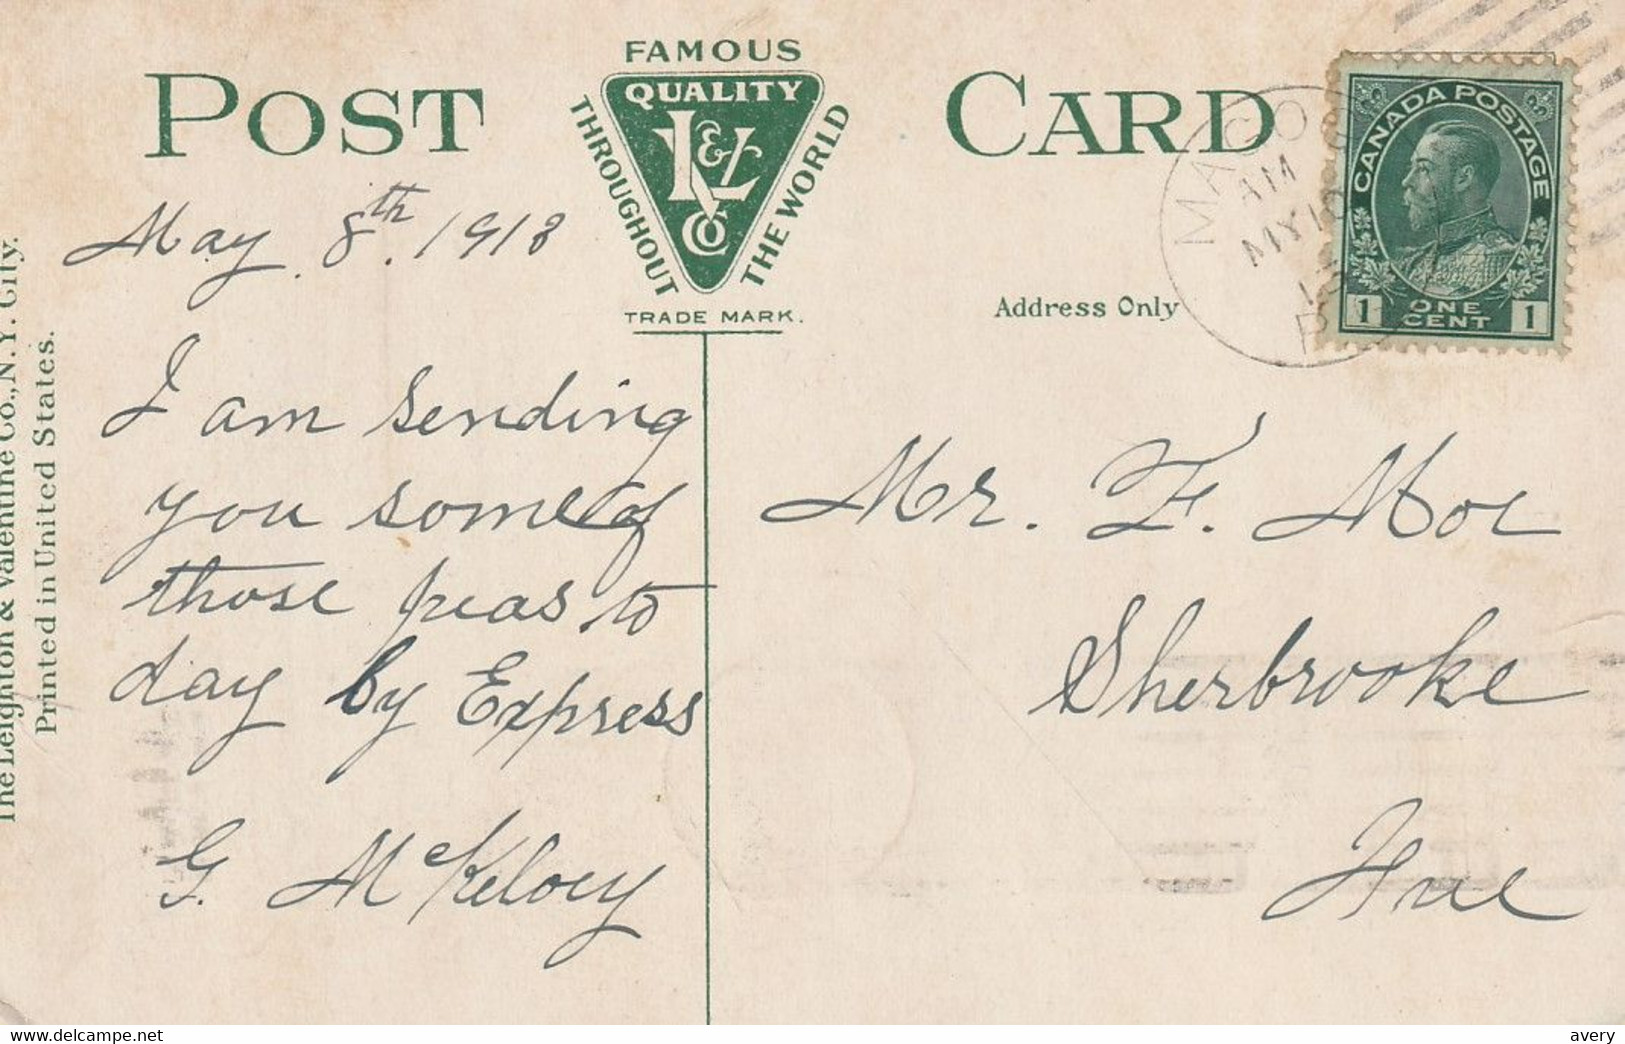 POST CARD
FAMOUS
QUALITY
THROUGHOUT
THE WORLD
V & L
Co
TRADE MARK.
CANADA POSTAGE
1 ONE CENT 1
AM
MY 10
Address Only
The Leighton & Valentine Co., N.Y. City.
Printed in United States.
May. 8th. 1913
I am sending
you some of
those peas to
day by Express
G. McKelvey
Mr. F. Moe
Sherbrooke
Que
avery